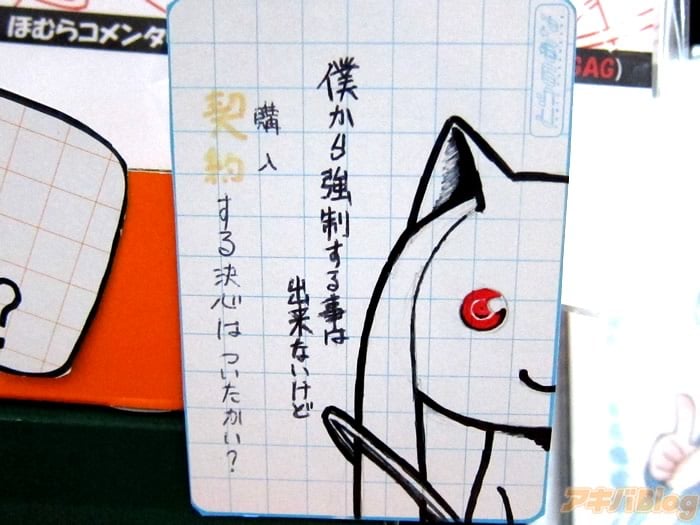 ほむらコメンタ
GAG)
僕から強制する事は
出来ないけど
購入
契約する決心はついたかい?
?
アキバBlog